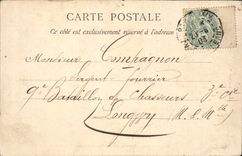 CARTE POSTALE
Ce côté est exclusivement réservé à l'adresse
Monsieur Compagnon
Sergent-fourrier
9e Bataillon de Chasseurs 3e Cie
Longwy M. & Mlle